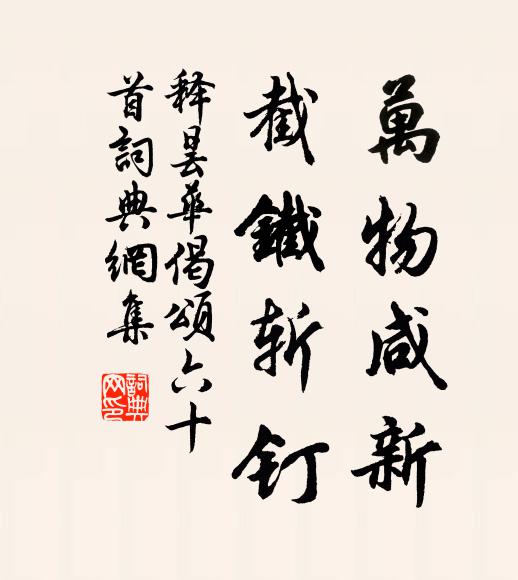 萬物咸新
截鐵斬釘
释曇華偈頌六十
首詞典網集
詞典
网印